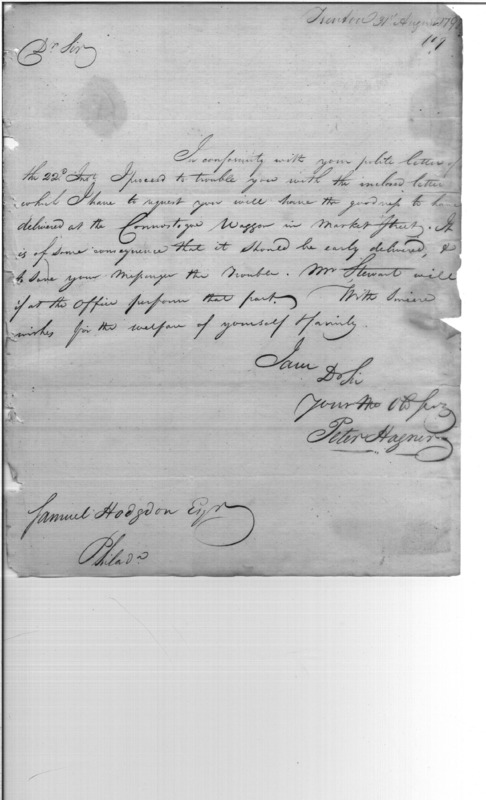 Trenton 31st August 179
Dr Sir
In conformity with your polite letter of
the 22d Inst. I proceed to trouble you with the inclosed letter
which I have to request you will have the goodness to be
delivered at the Connostogoe Waggon in Market Street. It
is of some consequence that it should be early delivered, &
to save your Messenger the trouble. Mr Stewart will
if at the office perform that part. With Sincere
wishes for the welfare of yourself & family.
I am
Dr Sir
Your Mo Ob Serv
Peter Hagner
Samuel Hodgdon Esqr
Philada